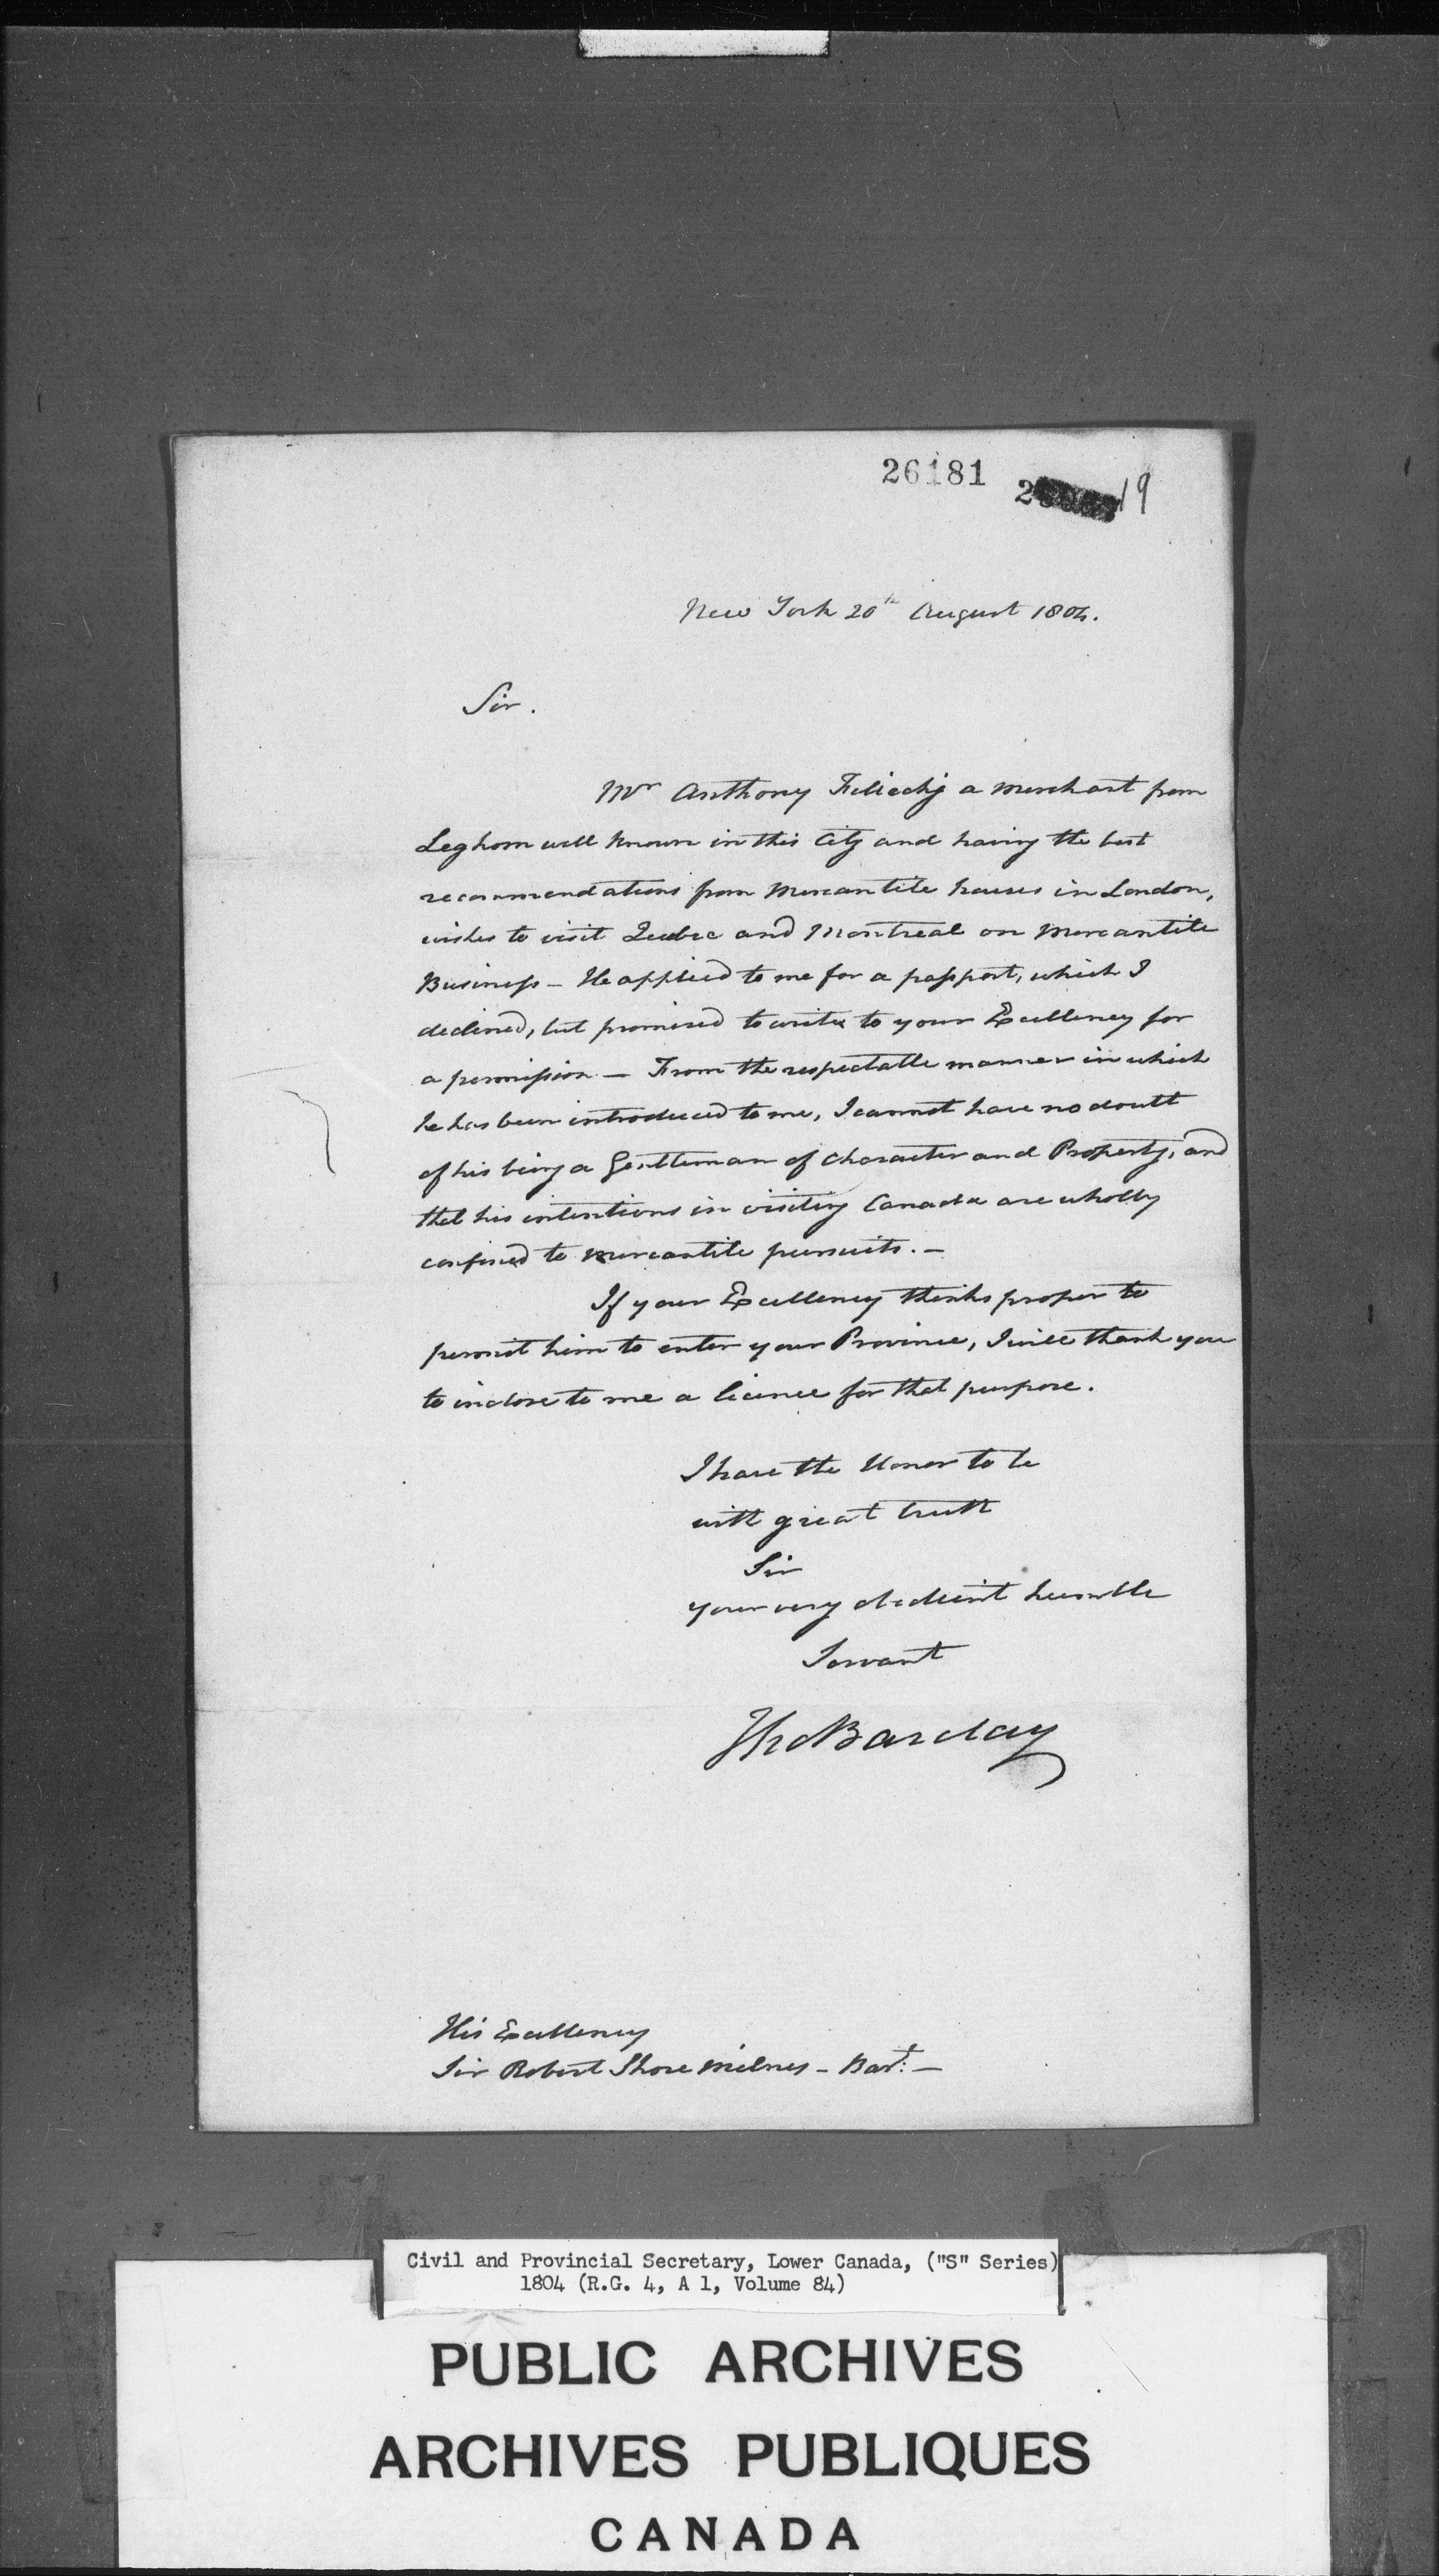 26181
19
New York 20th August 1804.
Sir.
Mr Anthony Felicchj a Merchant from
Leghorn well known in this City and having the best
recommendations from Mercantile houses in London,
wishes to visit Quebec and Montreal on Mercantile
Business - He applied to me for a passport, which I
declined, but promised to write to your Excellency for
a permission - From the respectable manner in which
he has been introduced to me, I cannot have no doubt
of his being a Gentleman of character and Property, and
that his intentions in visiting Canada are wholly
confined to mercantile pursuits. -
If your Excellency thinks proper to
permit him to enter your Province, I will thank you
to inclose to me a licence for that purpose.
I have the Honor to be
with great truth
Sir
your very obedient humble
Servant
Tho Barclay
His Excellency
Sir Robert Shore Milnes - Bart: -
Civil and Provincial Secretary, Lower Canada, ("S" Series)
1804 (R.G. 4, A 1, Volume 84)
PUBLIC ARCHIVES
ARCHIVES PUBLIQUES
CANADA